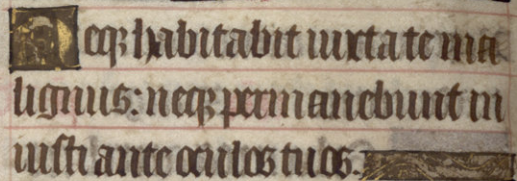 Neqꝫ habitabit iuxta te ma
lignus: neqꝫ permanebunt in
iusti ante oculos tuos.